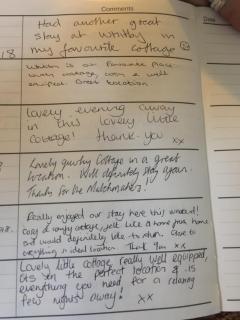 Comments
Date
Had another great
stay at Whitby in
18
my favourite cottage
Which is our favourite place
lovely cottage, cosy & well
Great location
Lovely evening away
in this lovely little
Cottage! Thank-you xx
Lovely quirky Cottage in a great
location. Will definitely stay again.
Thanks for the Matchmakers!
Really enjoyed our stay here this weekend!
Cosy & comfy cottage, felt like a home from home
and would definitely like to return. Close to
everything & ideal location. Thank You xx
Lovely little cottage really well equipped,
its in the perfect location & is
everything you need for a relaxing
few nights away! xx